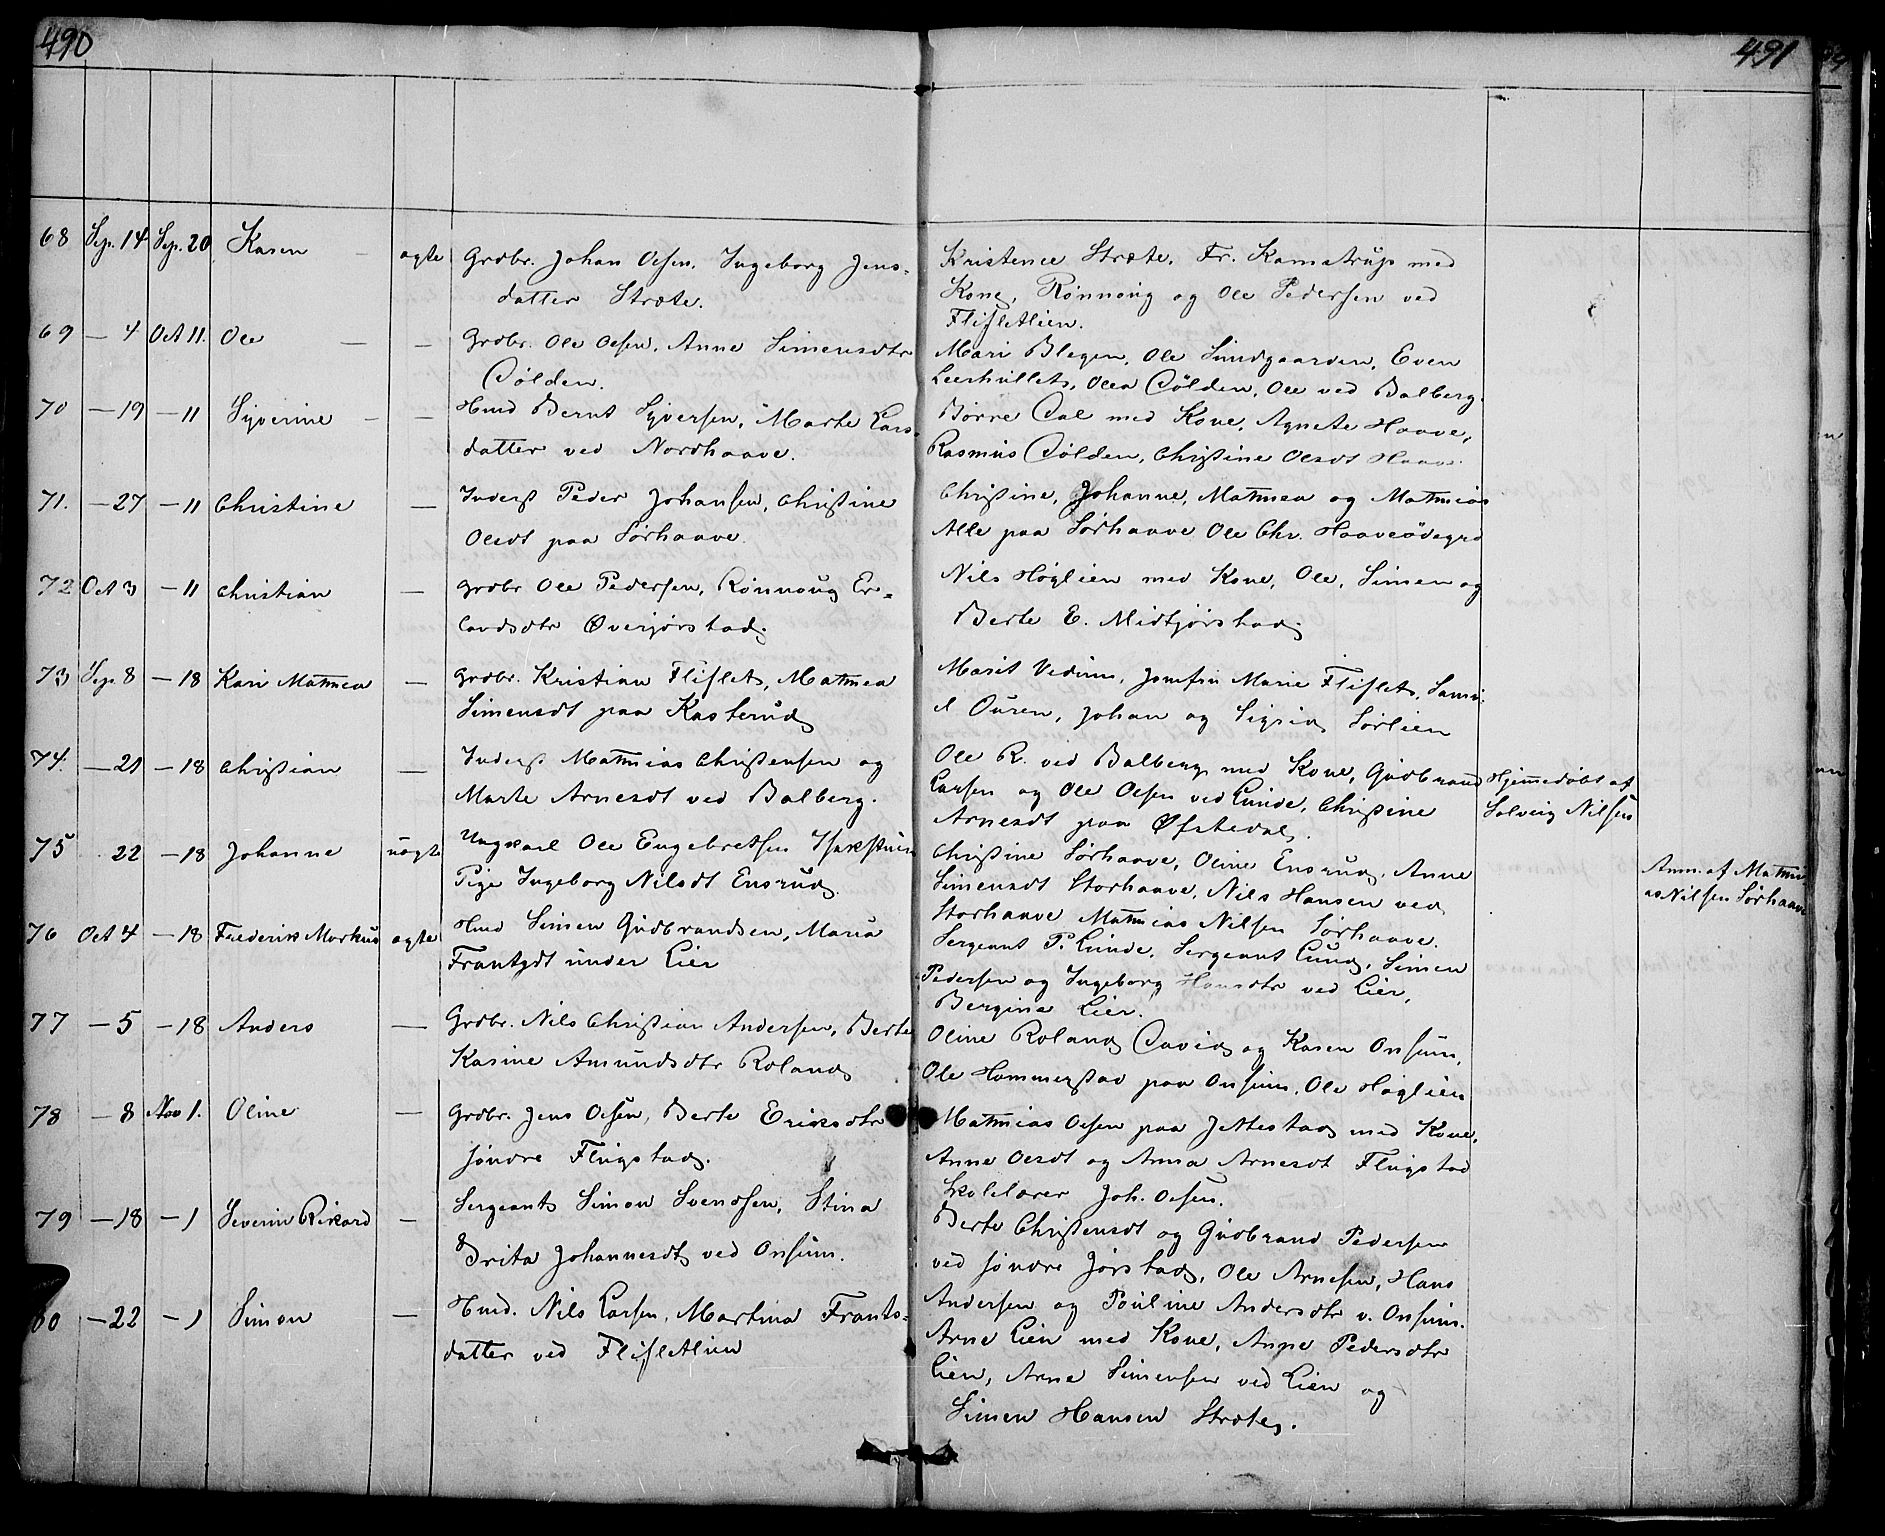 490
491
68 Sep. 14 Sep. 20 Karen — ægte Grdbr. Johan Olsen, Ingeborg Jens-
datter Stræte.
Kristence Stræte, Fr. Kamstrup med
Kone, Rönnoug og Ole Pedersen ved
Flifletlien.
69 — 4 Oct 11. Ole — — Grdbr. Ole Olsen, Anne Simensdtr
Dölden.
Mari Blegen, Ole Sundgaarden, Even
Olea Dölden, Ole ved Balberg.
70 — 19 — 11 Syverine — — Hmd Bernt Syversen, Marte Lars-
datter ved Nordhaave.
Börre Dal med Kone, Agnete Haave,
Rasmus Dölden, Christine Olsdt Haave.
71. — 27 — 11 Christine — Inderst Peder Johansen, Christine
Olsdt paa Sörhaave.
Christine, Johanne, Mathea og Mathias
Alle paa Sörhaave Ole Chr. Haaveödegrd
72 Oct 3 — 11 Christian — Grdbr Ole Pedersen, Rönnoug Er-
landsdtr Överjörstad.
Nils Höglien med Kone, Ole, Simen og
Berte E. Midtjörstad
73 Sep. 8 — 18 Kari Mathea — Grdbr. Kristian Fliflet, Mathea
Simensdt paa Kasterud
Marit Vedum, Josefin Marie Fliflet, Samu-
el Ouren, Johan og Sigrid Sörlien
74. — 21 — 18 Christian — Inderst Mathias Christensen og
Marte Arnesdt ved Balberg.
Ole R. ved Balberg med Kone, Gudbrand
Larsen og Ole Olsen ved Lunde, Christine
Arnesdt paa Öfstedal.
Hjemmedöbt af
Solveig Nilsen
75 22 — 18 Johanne uægte Ungkarl Ole Engebretsen
Pige Ingeborg Nilsdt Ensrud.
Christine Sörhaave, Oline Ensrud, Anne
Simensdt Storhaave, Nils Hansen ved
Storhaave Mathias Nilsen Sörhaave.
Anm. af Mathi-
as Nilsen Sörhaave
76 Oct 4 — 18 Frederik Markus ægte Hmd Simen Gudbrandsen, Maria
Frantzdt under Lier
Sergeant P. Lunde, Sergeant Lund, Simen
Pedersen og Ingeborg Hansdtr ved Lier,
Bergine Lier.
77 — 5 — 18 Anders — Grdbr. Nils Christian Andersen, Berte
Karine Amundsdtr Roland
Oline Roland David og Karen Onsum,
Ole Hammerstad paa Onsum, Ole Höglien
78 — 8 Nov 1. Oline — Grdbr. Jens Olsen, Berte Eriksdtr
söndre Flugstad.
Mathias Olsen paa Jettestad med Kone,
Anne Olsdt og Anna Arnesdt Flugstad
Skolelærer Joh. Olsen.
79 — 18 — 1 Severin Rikard — Sergeant Simon Svendsen, Stina
Brita Johannesdt ved Onsum.
Berte Christensdt og Gudbrand Pedersen
ved söndre Jörstad, Ole Arnesen, Hans
Andersen og Pouline Andersdtr v. Onsum.
80 — 22 — 1 Simon — Hmd. Nils Larsen, Martina Frants-
datter ved Flifletlien
Arne Lien med Kone, Anne Pedersdtr
Lien, Arne Simensen ved Lien og
Simen Hansen Stræte.